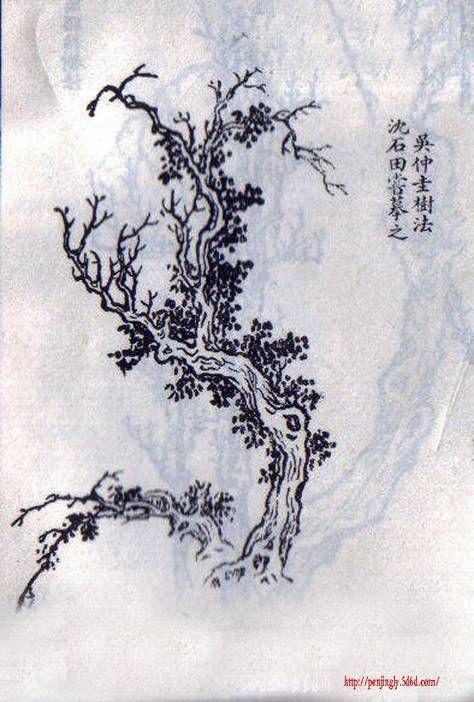 吳仲圭樹法
沈石田嘗摹之
http://penjingly.5d6d.com/